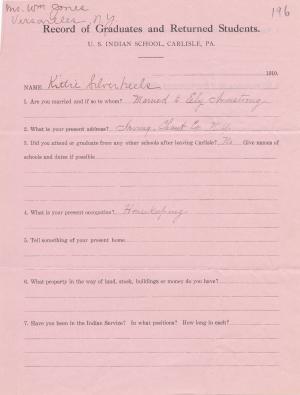 Mr. Wm Jones
Versailles, N.Y.
196
Record of Graduates and Returned Students.
U. S. INDIAN SCHOOL, CARLISLE, PA.
1910.
NAME Kittie Silverheels
1. Are you married and if so to whom? Married to Ely Armstrong
2. What is your present address? Irving, Chaut Co N.Y.
3. Did you attend or graduate from any other schools after leaving Carlisle? No Give names of
schools and dates if possible
4. What is your present occupation? Housekeeping
5. Tell something of your present home
6. What property in the way of land, stock, buildings or money do you have?
7. Have you been in the Indian Service? In what positions? How long in each?